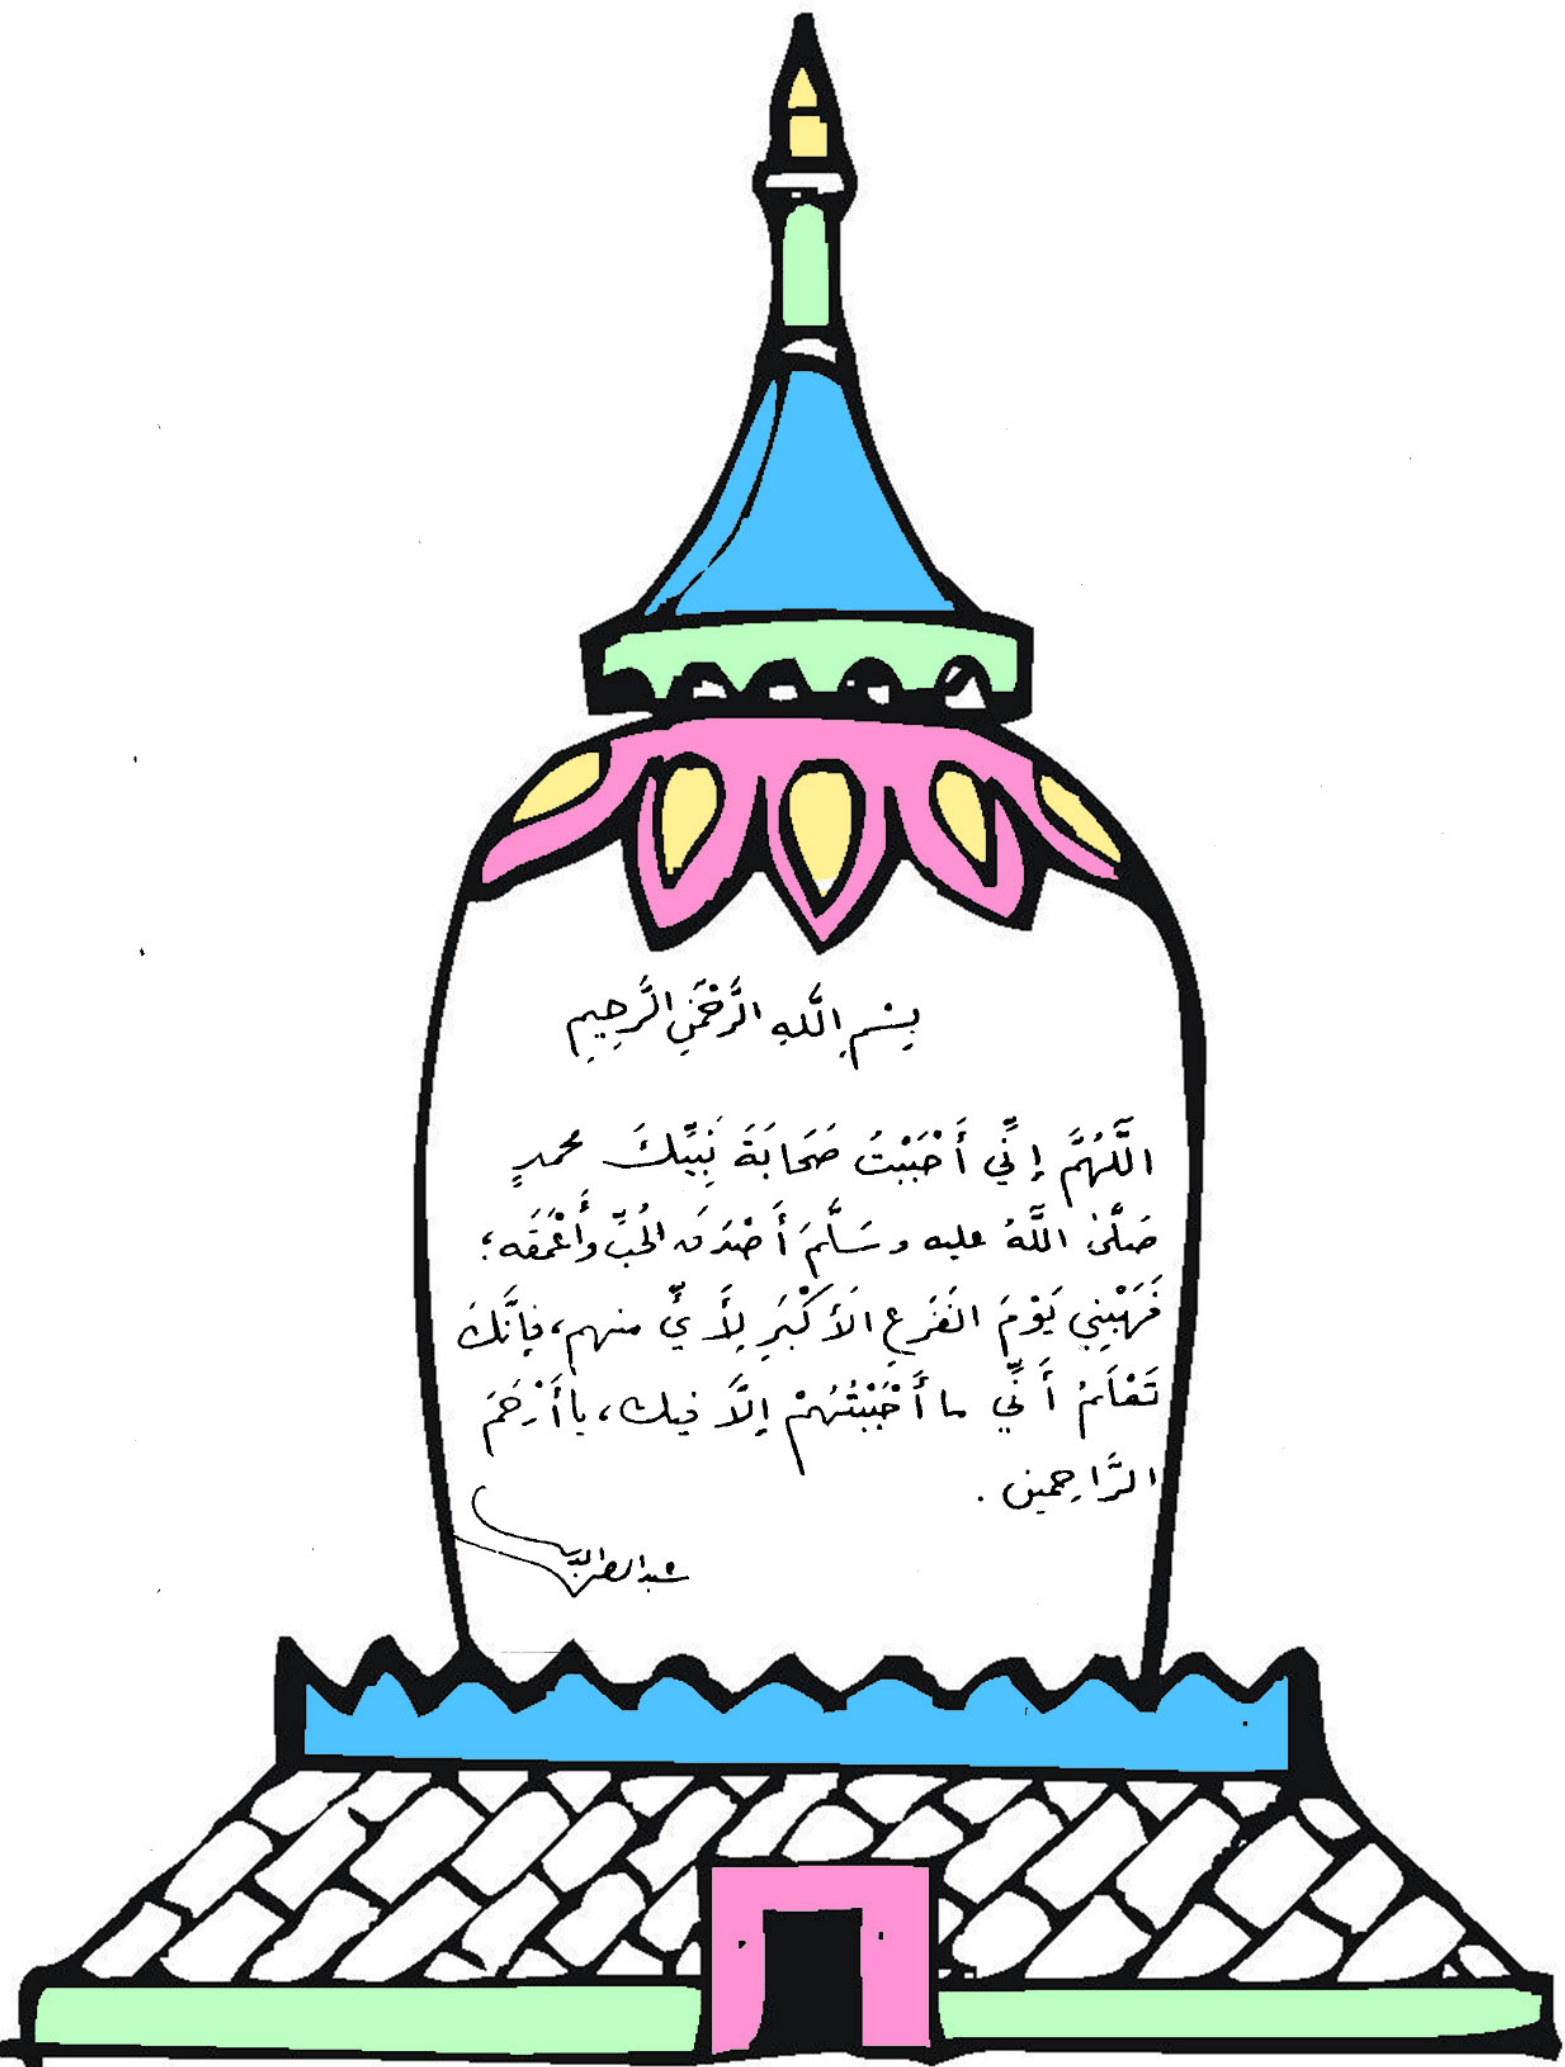 بِسْمِ اللَّهِ الرَّحْمَنِ الرَّحِيمِ
اللَّهُمَّ إِنِّي أَحْبَبْتُ صَحَابَةَ نَبِيِّكَ محمدٍ
صَلَّىٰ اللَّهُ عليه وسَلَّمَ أَصْدَقَ الحُبِّ وأَعْمَقَه؛
فَهَبْنِي يَوْمَ الفَزَعِ الأَكْبَرِ لِأَيٍّ منهم، فإِنَّكَ
تَعْلَمُ أَنِّي ما أَحْبَبْتُهُمْ إِلَّا فيك، يا أَرْحَمَ
الرَّاحِمين .